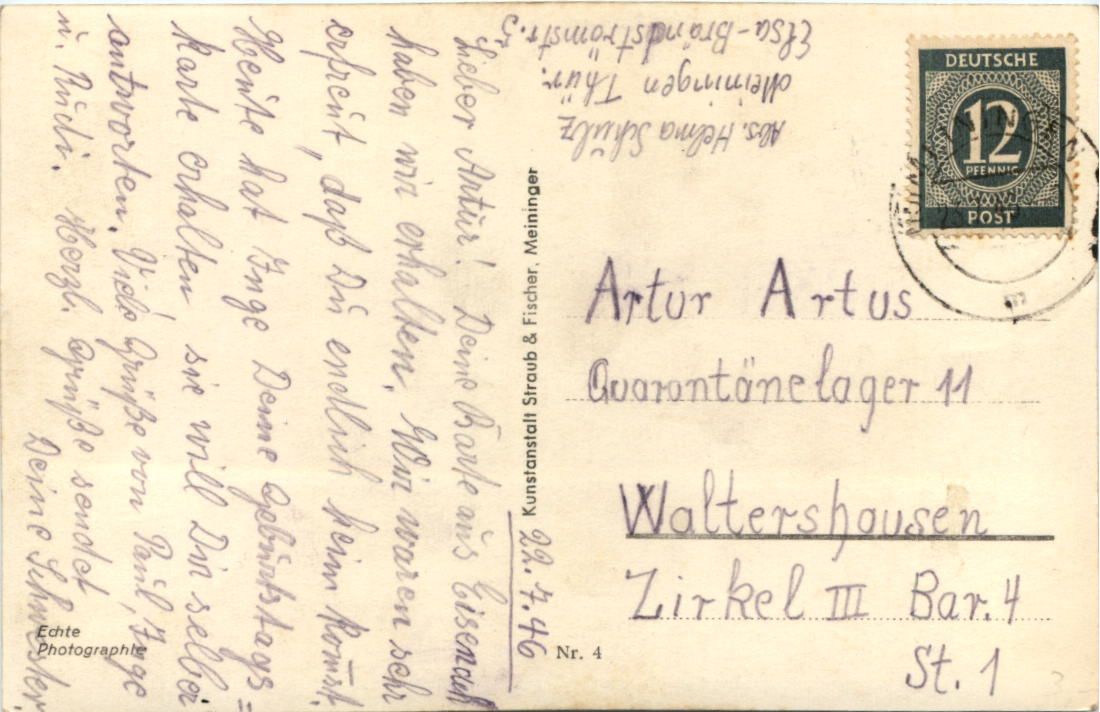 Lieber Artur! Deine Karte aus Eisenach
haben wir erhalten. Wir waren sehr
erfreut, daß Du endlich heim kommst.
Heute hat Inge Deine Geburtstags=
karte erhalten, sie will Dir selber
antworten. Viele Grüße von Paul, Inge
u. Rudi. Herzl. Grüße sendet
Deine Schwester.
Echte
Photographie
Kunstanstalt Straub & Fischer, Meiningen
29.7.46
Nr. 4
Abs. Helma Schülz
Meiningen Thür.
Elsa-Brandströmstr. 5
DEUTSCHE
12
PFENNIG
POST
Artur Artus
Quarantänelager 11
Waltershausen
Zirkel III Bar. 4
St. 1